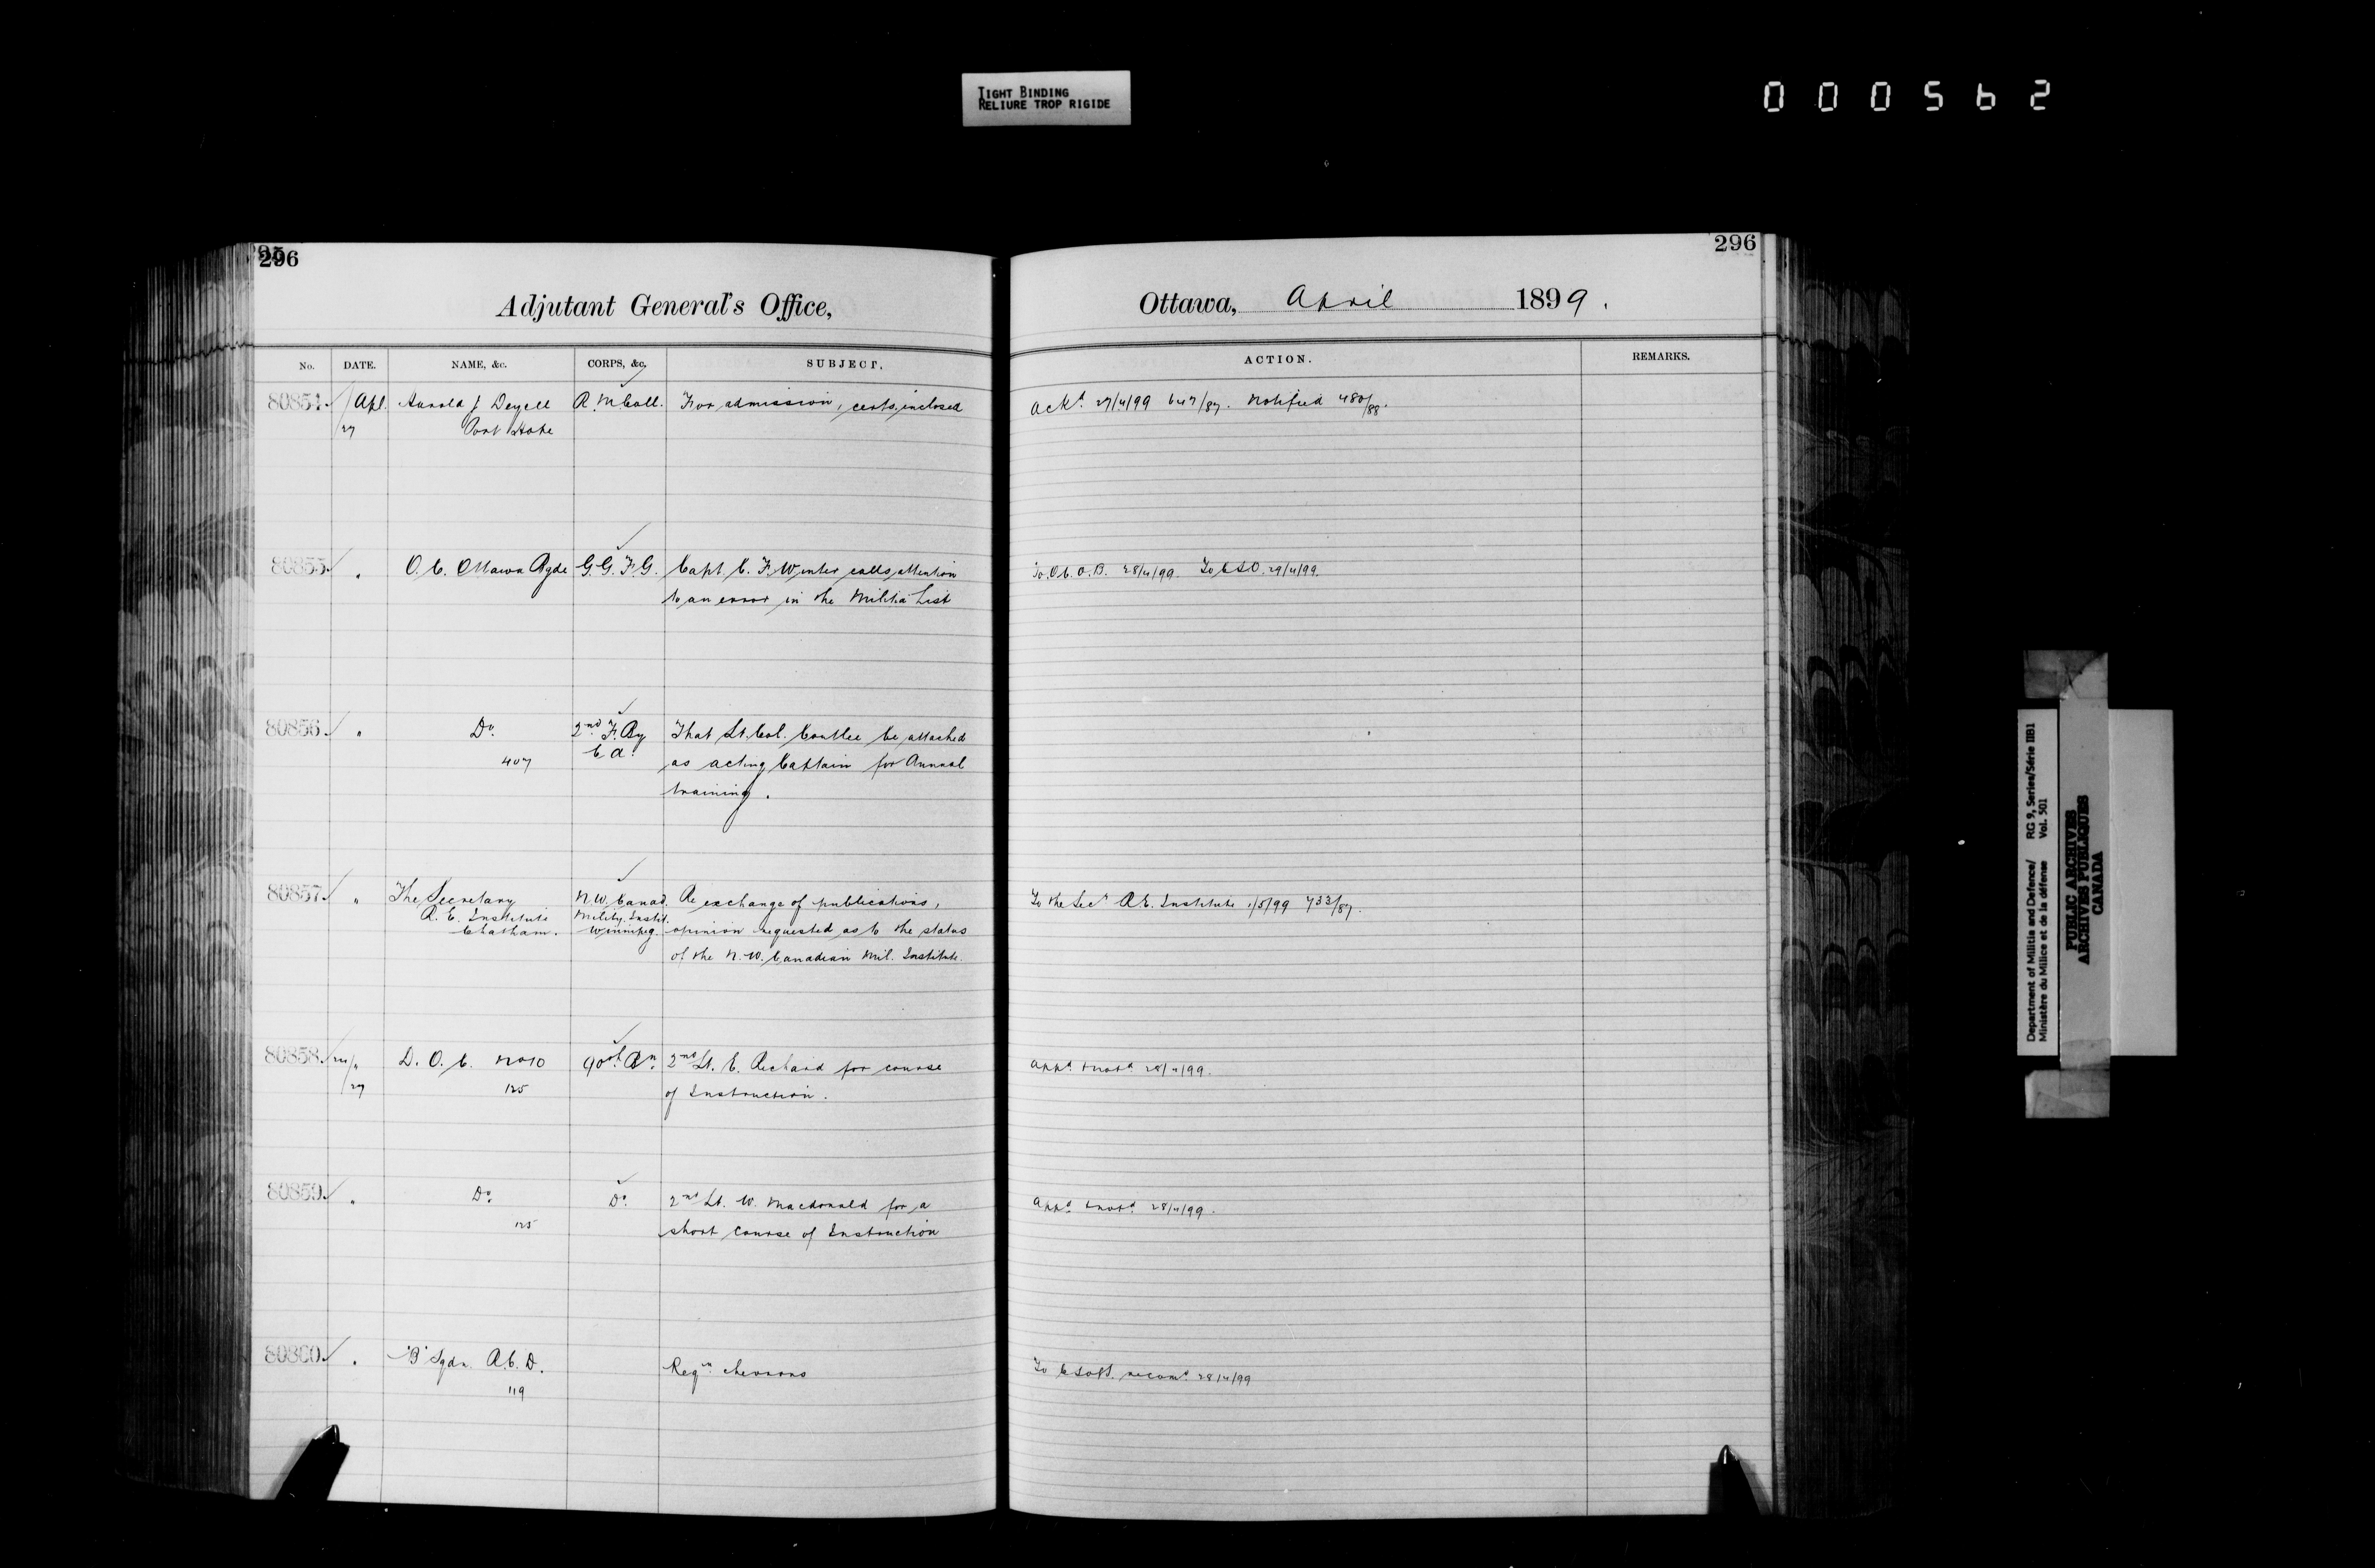 TIGHT BINDING
RELIURE TROP RIGIDE
000562
296
296
Adjutant General's Office,
Ottawa, April 1899.
No. DATE. NAME, &c. CORPS, &c. SUBJECT. ACTION. REMARKS.
80854 Apl. Arnold J Deyell R. M. Coll. For admission, certs, inclosed Ackd 27/4/99 647/87. Notified 480/88.
27 Port Hope
80855 " O. C. Ottawa Bgde G. G. F. G. Capt. C. F. Winter calls attention To O. C. O. B. 28/4/99. To C S O. 29/4/99.
to an error in the Militia List
80856 " Do. 2nd F. By That Lt. Col. Coutlee be attached
407 C A. as acting Captain for Annual
training.
80857 " The Secretary N. W. Canad. Re exchange of publications, To the Secy R. E. Institute 1/5/99 733/87.
R. E. Institute Militry. Instit.
Chatham. Winnipeg. opinion requested as to the status
of the N. W. Canadian Mil. Institute.
80858 " D. O. C. No 10 90th Bn. 2nd Lt. E. Richard for course Appd. & notd. 28/4/99.
27 125 of Instruction.
80859 " Do. Do. 2nd Lt. W. Macdonald for a Appd. & notd. 28/4/99.
125 short course of Instruction
80860 " "B" Sqdn. R. C. D. Reqn. chevrons To C S of S. recomd. 28/4/99
119
Department of Militia and Defence/ RG 9, Series/Série IIB1
Ministère du Milice et de la défense Vol. 501
PUBLIC ARCHIVES
ARCHIVES PUBLIQUES
CANADA